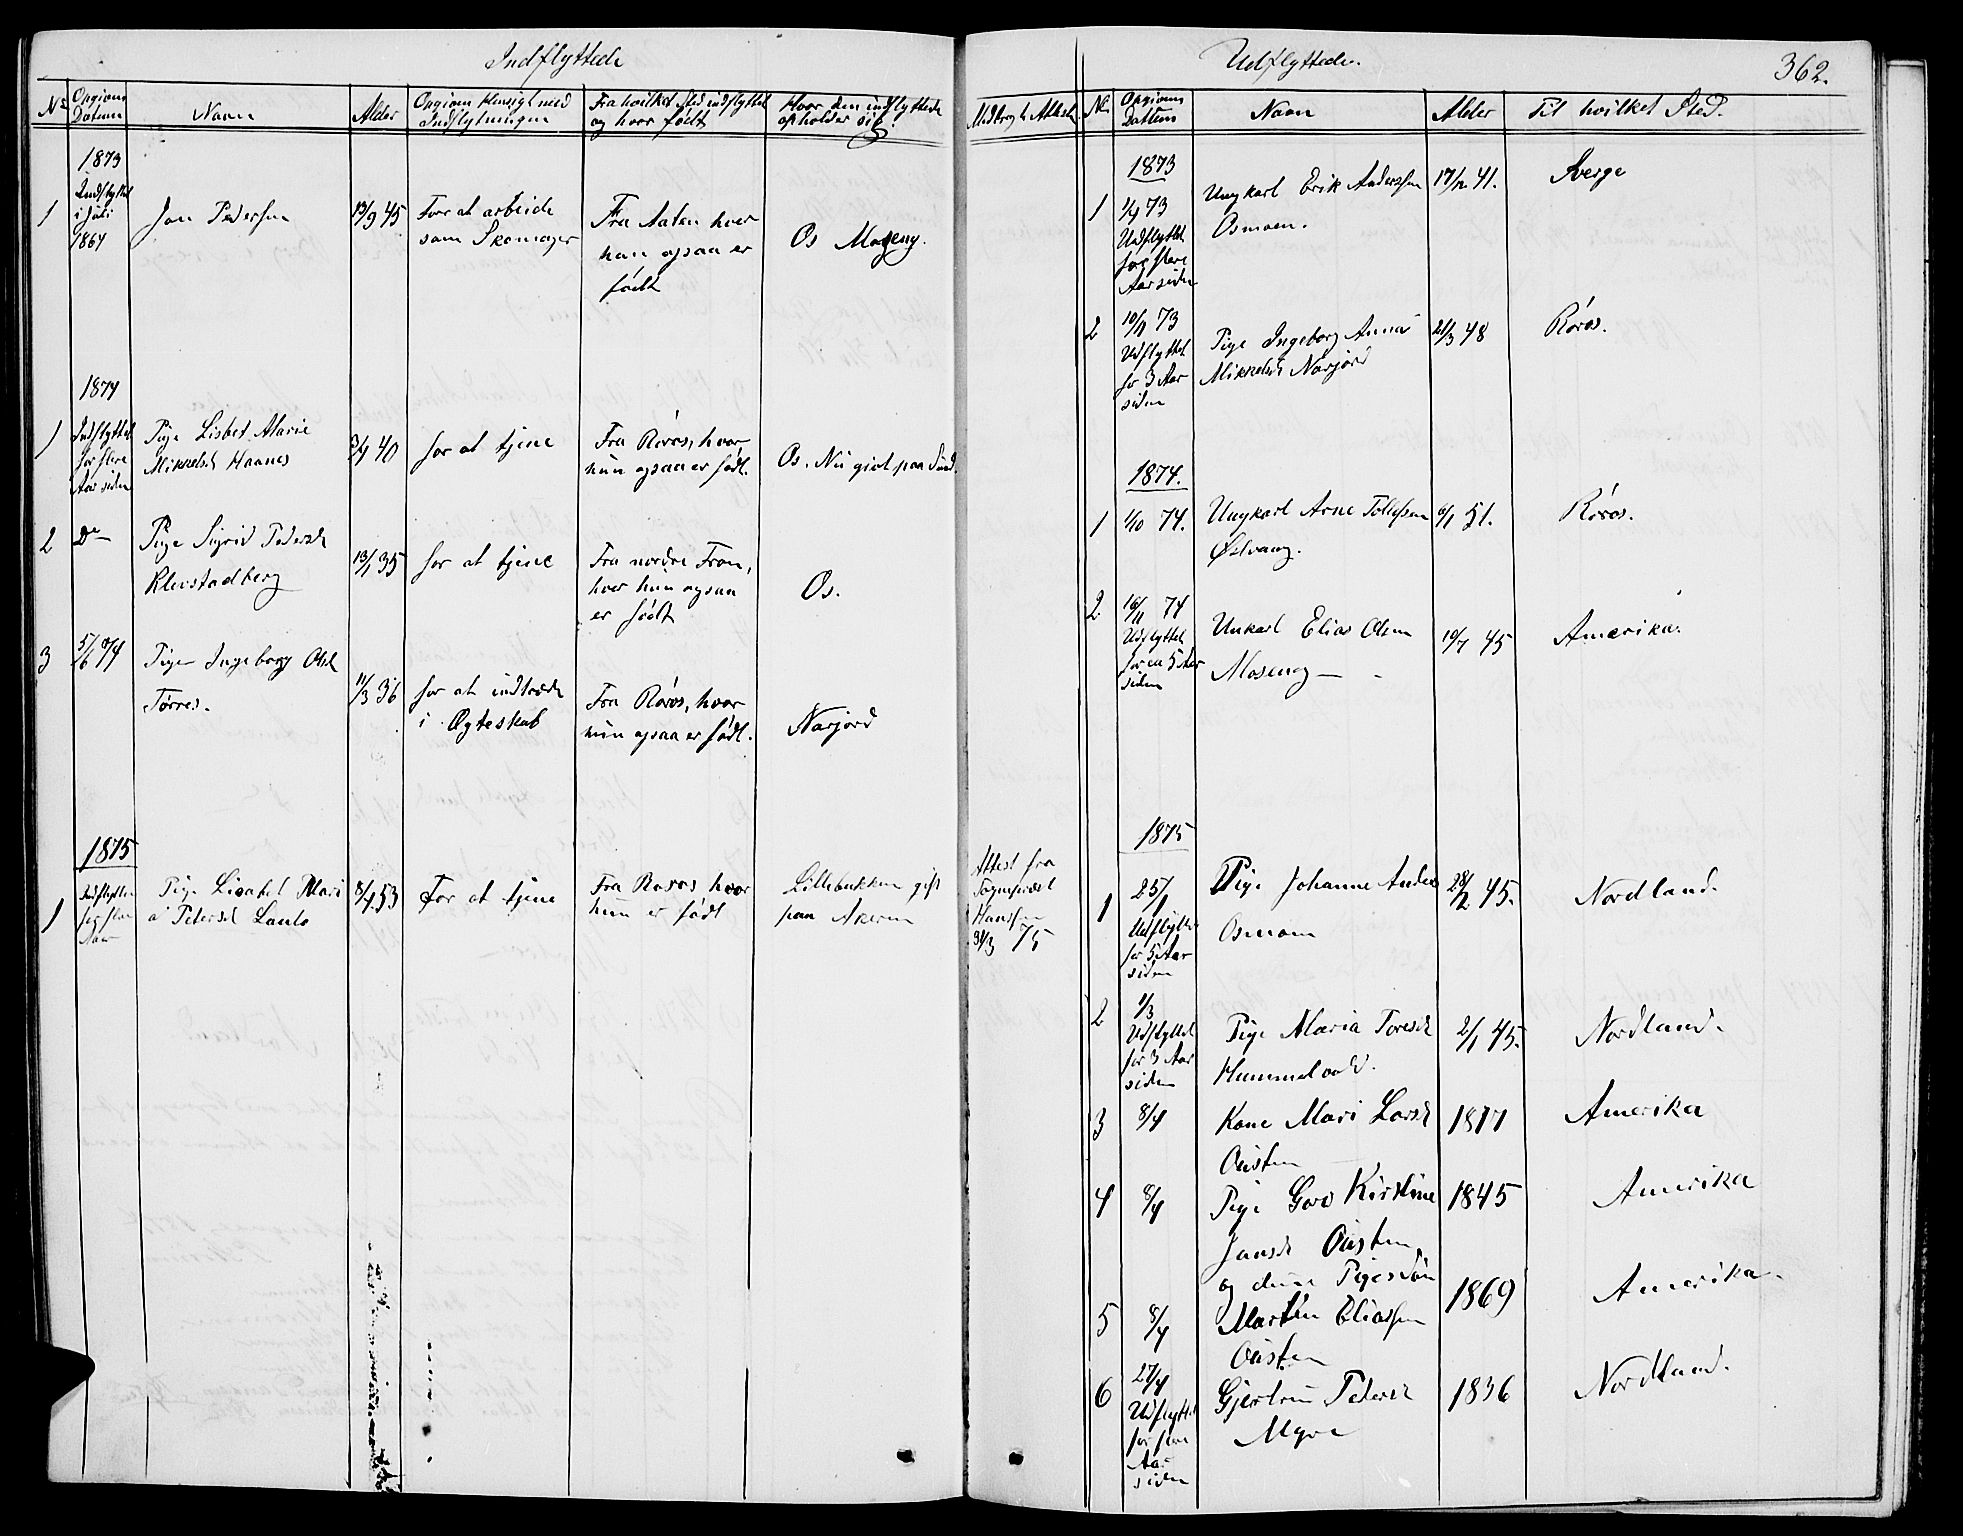 Indflyttede
No
Opgivens
Datum
Navn
Alder
Opgiven Hensigt med
Indflytningen
Fra hvilket Sted indflyttet
og hvor født
Hvor den indflyttede
opholder sig.
Medbragt Attest
1873
1
Indflyttet
i Juli
1864
Jon Pedersen
13/9 45
For at arbeide
som Skomager
Fra Aalen hvor
han ogsaa er
født
Os Moseng.
1874
1
Indflyttet
for flere
Aar siden
Pige Lisbet Marie
Mikkelsd Haanes
40
for at tjene
Fra Røros, hvor
hun ogsaa er født.
Os. Nu givt paa Sund.
2
Do
Pige Sigrid Pedersd
Klevstadberg
13/1 35
for at tjene
Fra nordre Fron,
hvor hun ogsaa
er født
Os.
3
5/6 74
Pige Ingeborg Olsd
Tørres.
11/3 36
for at indtræde
i Ægteskab
Fra Røros, hvor
hun ogsaa er født.
Narjord
1875
1
Indflyttet
for flere
Aar
Pige Lisabet Mari
a Pedersd
8/4 53
For at tjene
Fra Røros hvor
hun er født
Lillebækken gift
paa Akeren
Attest fra
Sogneprest
Hanssen
31/3 75
Udflyttede.
362.
No
Opgivens
Dattum
Navn
Alder
Til hvilket Sted.
1873
1
1/4 73
Udflyttet
for flere
Aar siden
Ungkarl Erik Anderssen
Osmoen.
17/12 41.
Sverge
2
10/11 73
Udflyttet
for 3 Aar
siden
Pige Ingeborg Anna
Mikkelsd Narjord
21/3 48
Røros.
1874.
1
1/10 74.
Ungkarl Arne Tollefsen
Østvang.
6/1 51.
Røros.
2
16/11 74
Udflyttet
for ca 5 Aar
siden
Unkarl Elias Olsen
Moseng
19/7 45
Amerika.
1875
1
25/1
Udflyttet
for 5 Aar
siden
Pige Johanne Anders
Osmoen
28/2 45.
Nordland.
2
1/3
Udflyttet
for 3 Aar
siden
Pige Maria Toresd
Hummelvold.
2/1 45.
Nordland.
3
8/4
Kone Mari Larsd
Ousten
1817
Amerika
4
8/4
Pige Goro Kirstine
Jonsd Ousten
1845
Amerika
og denne Piges Søn
5
8/4
Martin Eliassen
Ousten
1869
Amerika.
6
27/4
Udflyttet
for flere
Aar
siden
Gjertrud Pedersd
Myre
1836
Nordland.